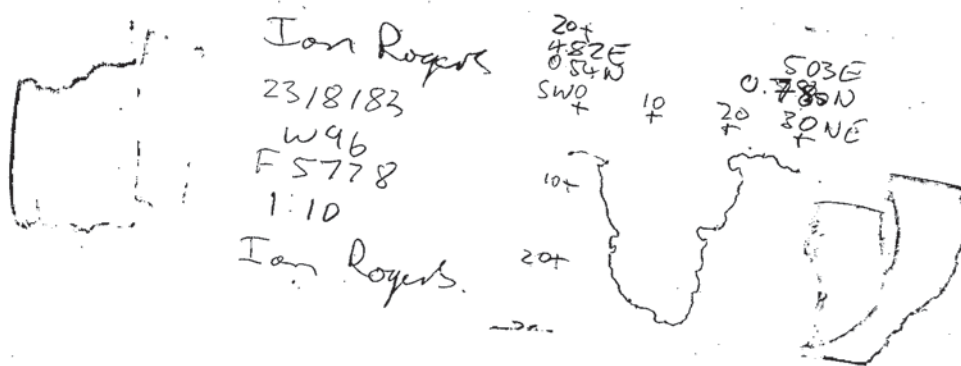 Ian Rogers
23/8/83
W96
F 5778
1:10
Ian Rogers.
20+
482E
054N
SW0
+
10
+
20
+
503E
30 NE
+
10+
20+